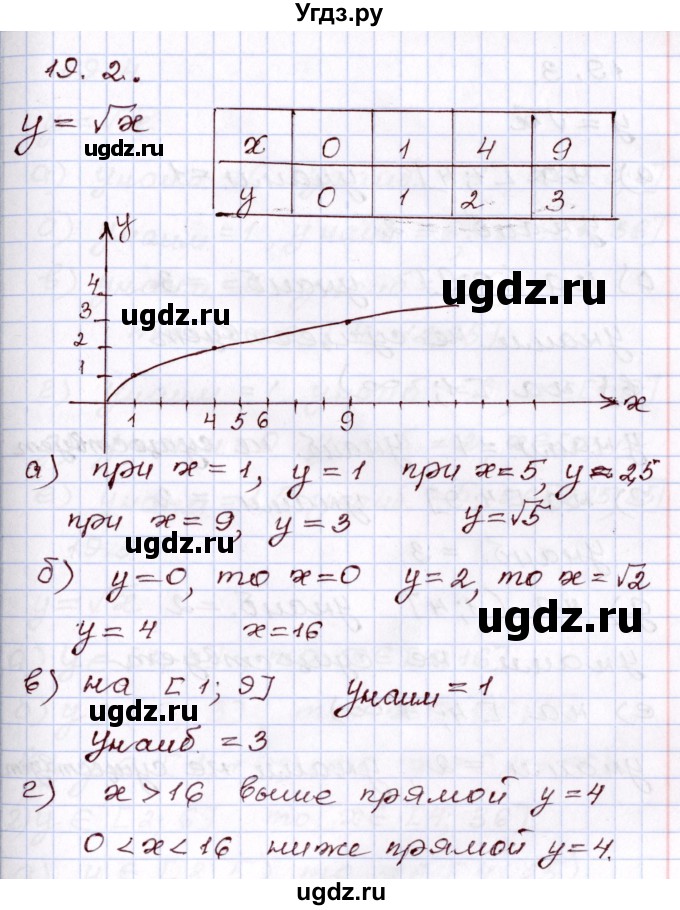 Угдз.ру
19. 2.
y = √x
ugdz.ru
x 0 1 4 9
y 0 1 2. 3.
y
4
3
2
1
ugdz.ru
ugdz.ru
1 4 5 6 9 x
ugdz.ru
а) при x = 1, y = 1 при x = 5, y ≈ 2,5
при x = 9, y = 3 y = √5
ugdz.ru
б) y = 0, то x = 0 y = 2, то x = √2
y = 4 x = 16
ugdz.ru
в) на [1; 9] yнаим = 1
ugdz.ru
yнаиб. = 3
г) x > 16 выше прямой y = 4
0 < x < 16 ниже прямой y = 4.
ugdz.ru
ugdz.ru